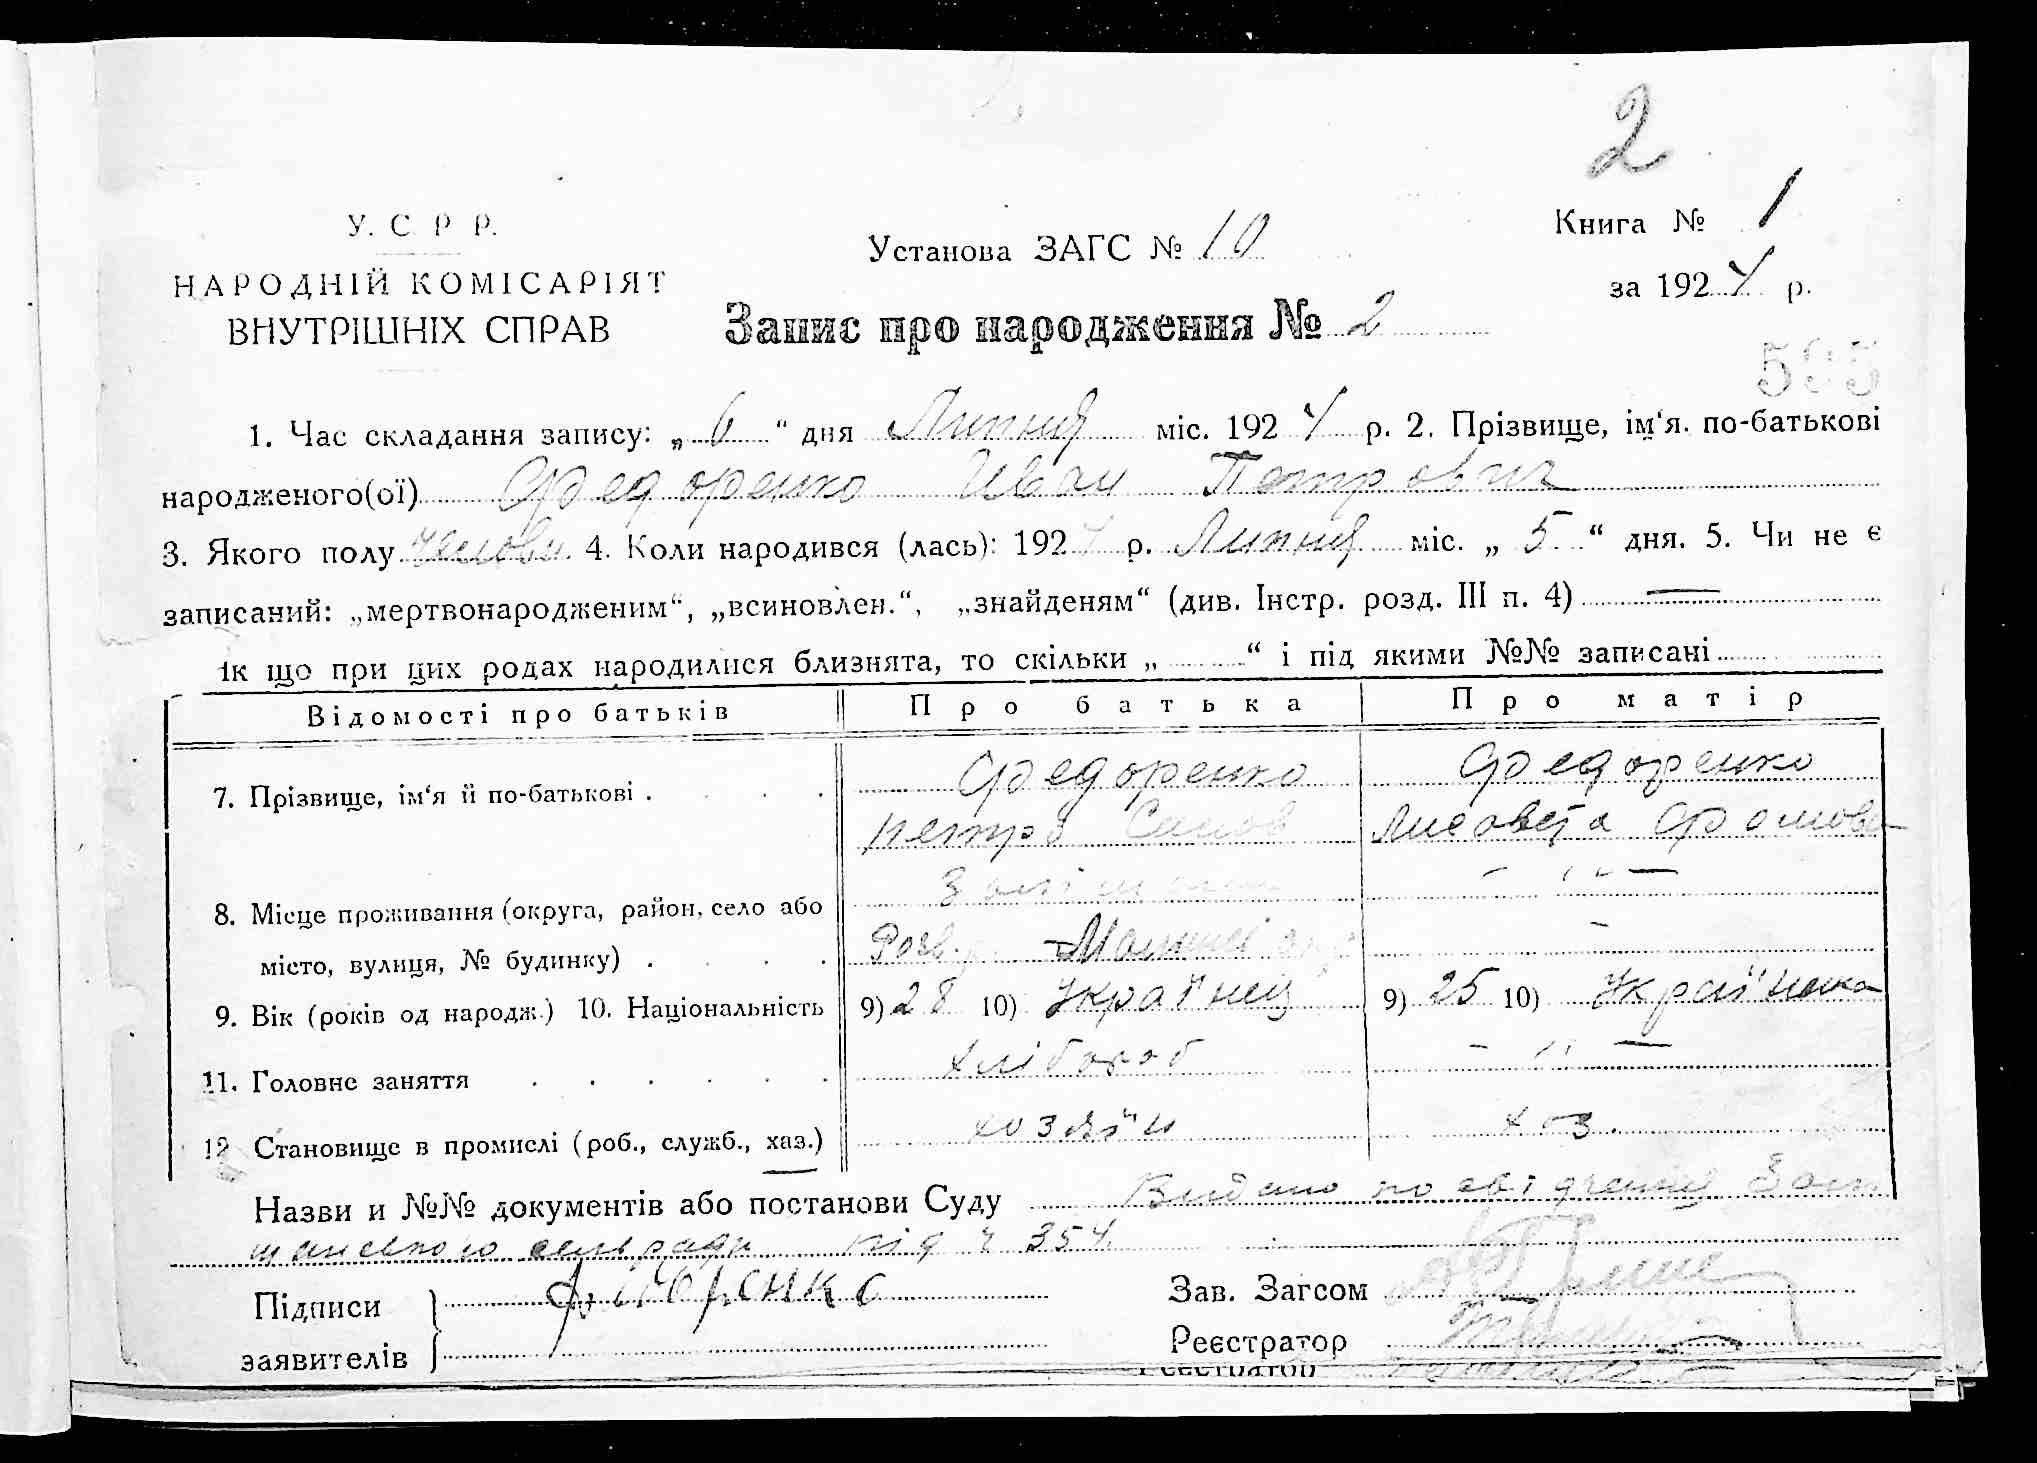 2
У. С. Р. Р.
НАРОДНІЙ КОМІСАРІЯТ
ВНУТРІШНІХ СПРАВ
Установа ЗАГС № 10
Книга № 1
за 1924 р.
Запис про народження № 2
595
1. Час складання запису: „6“ дня Липня міс. 1924 р. 2. Прізвище, ім‘я. по-батькові
народженого(ої) Федоренко Иван Петрович
3. Якого полу чолови. 4. Коли народився (лась): 1924 р. Липня міс. „5“ дня. 5. Чи не є
записаний: „мертвонародженим“, „всиновлен.“, „знайденям“ (див. Інстр. розд. III п. 4) —
Ік що при цих родах народилися близнята, то скільки „ “ і під якими №№ записані
Відомості про батьків Про батька Про матір
7. Прізвище, ім‘я й по-батькові . Федоренко Федоренко
Петро Лисовета Фомовa
8. Місце проживання (округа, район, село або — " —
місто, вулиця, № будинку) . —
9. Вік (років од народж.) 10. Національність 9) 28 10) Украінец 9) 25 10) Украінка
11. Головне заняття хлібороб — " —
12 Становище в промислі (роб., служб., хаз.) хозяїн хоз.
Назви и №№ документів або постанови Суду Видано посвідчення
сельради під ч 354.
Підписи Федоренко Зав. Загсом
заявителів Реєстратор
Реєстратор